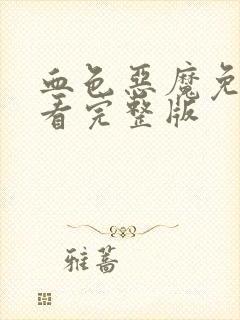 血色惡魔免
看完整版
雅蔷